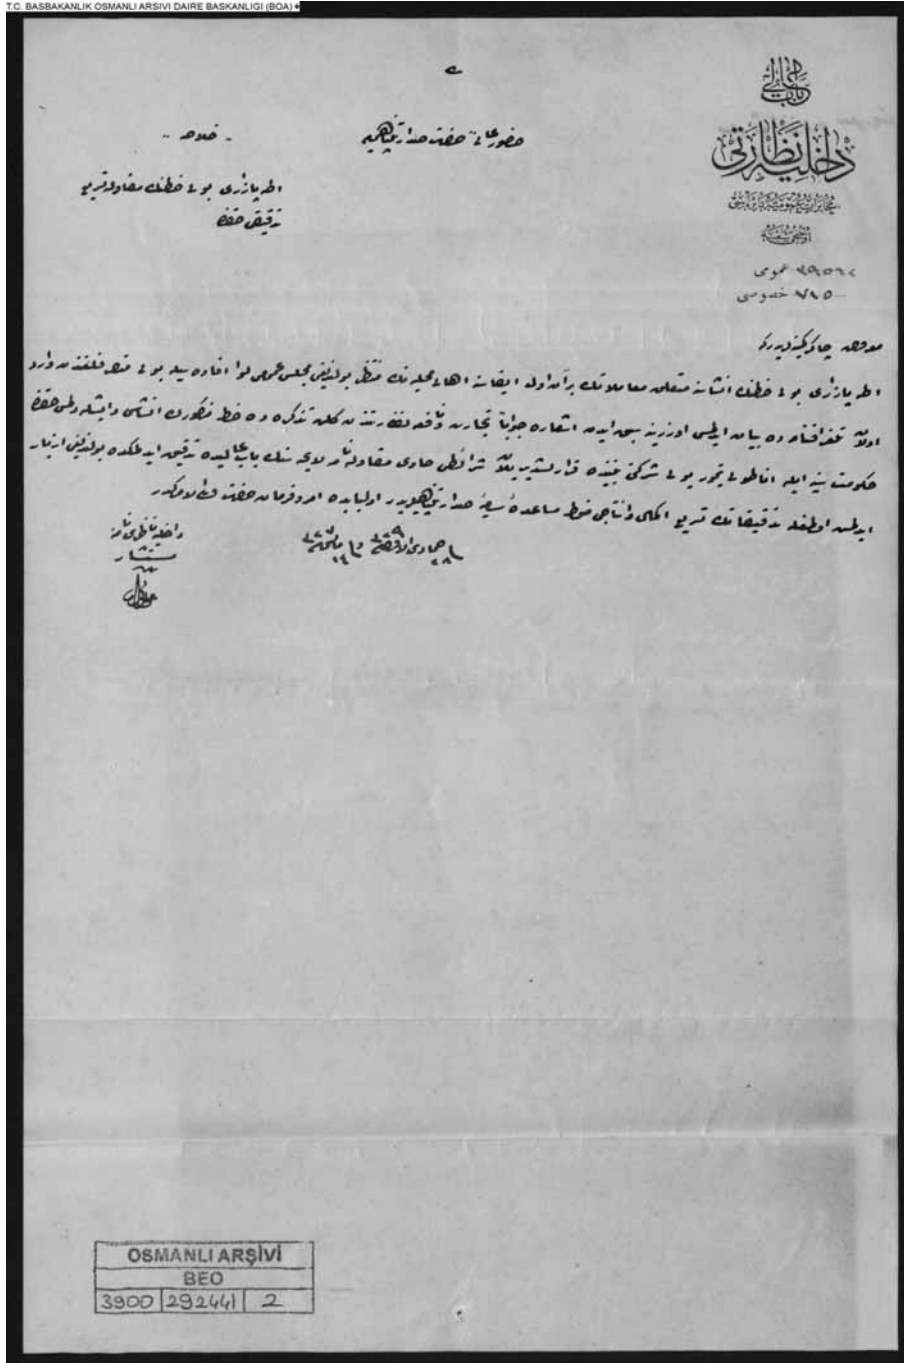 T.C. BASBAKANLIK OSMANLI ARSIVI DAIRE BASKANLIGI (BOA)
باب عالی
داخلیه نظارتی
مخابرات عمومیه دائره سی
عمومی
خصوصی
حضور عالئ حضرت صدارتپناهی‌یه
خلاصه
اطه پازاری بولی خطنك مقاوله تسریع
تدقیقی حقنده
معروض چاكر كمینه‌لریدر كه
اطه پازاری بولی خطنك انشاسنه متعلق معاملاتك بر آن اول ایفاسنه اهالئ محلیه‌نك منتظر بولندیغی مجلس عمومی لوا افاده‌سیله بولی متصرفلغندن وارد
اولان تلغرافنامه‌ده بیان ایدلمسی اوزرینه سبق ایدن اشعاره جواباً تجارت و نافعه نظارتندن كلن تذكره‌ده خط مذكورك انشاسی و ایشلدلمسی حقنده
حكومت سنیه ایله اناطولی تیمور یولی شركتی بیننده قرارلشدیریلان شرائطی حاوی مقاوله‌نامه لایحه‌سنك باب عالیده تدقیق ایدلمكده بولندیغی ازبار
ایدلمش اولمغله تدقیقاتك تسریع اكمالی و انتاجی منوط مساعدۀ سنیۀ صدارتپناهیلریدر اولبابده امر و فرمان حضرت من له الامركدر
داخلیه ناظری نامنه
مستشار
OSMANLI ARŞİVİ
BEO
3900 292441 2